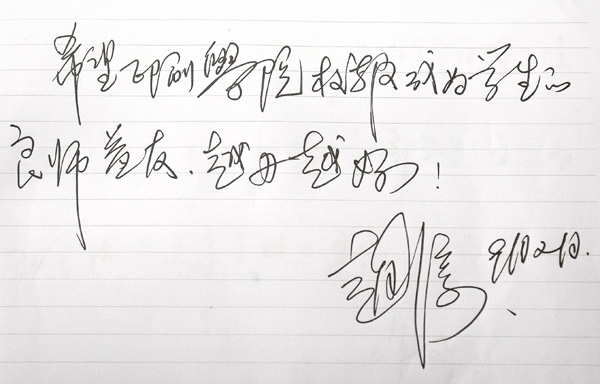 希望印刷學院校報成为学生的
良师益友、越办越好！
9月2日.